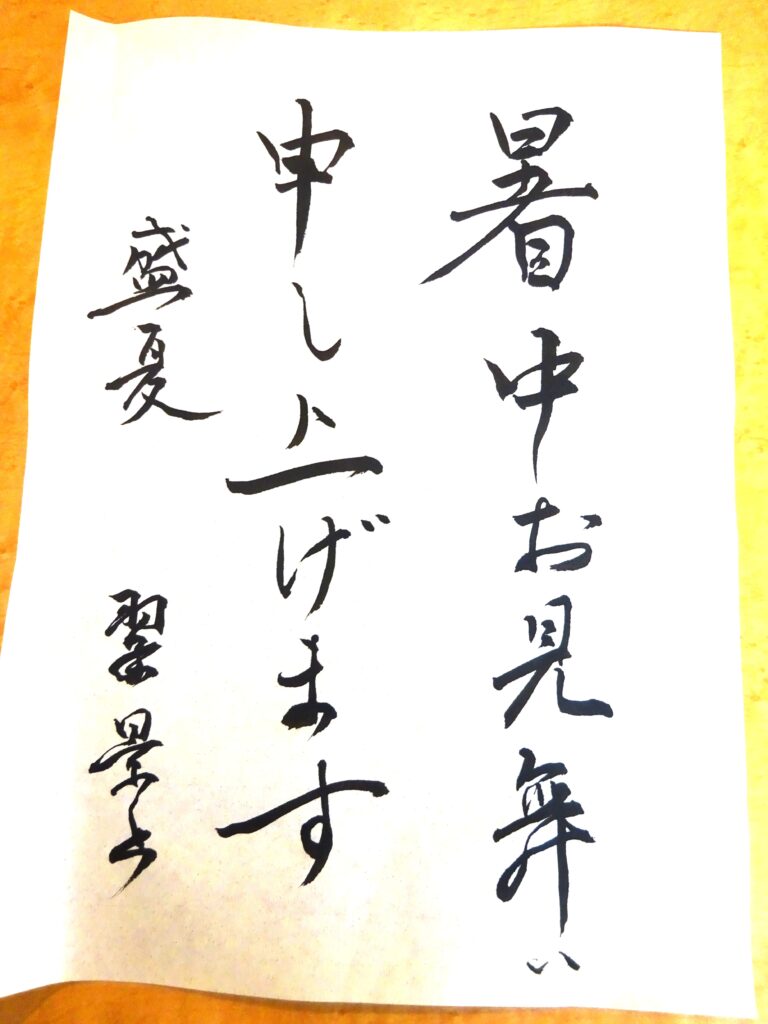 暑中お見舞い
申し上げます
盛夏
翠景